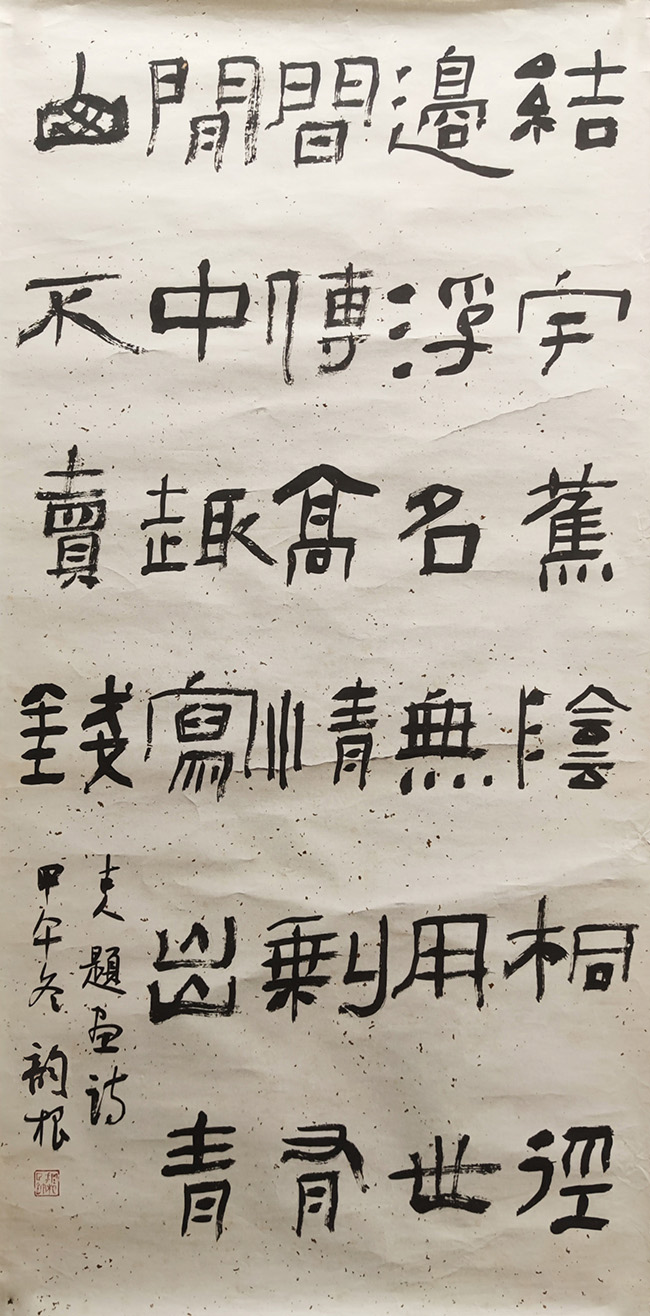 結宇蕉陰桐徑
邊浮名無用世
間傳高情剩有
閒中趣寫出青
山不賣錢
題画詩
甲午冬 韵根